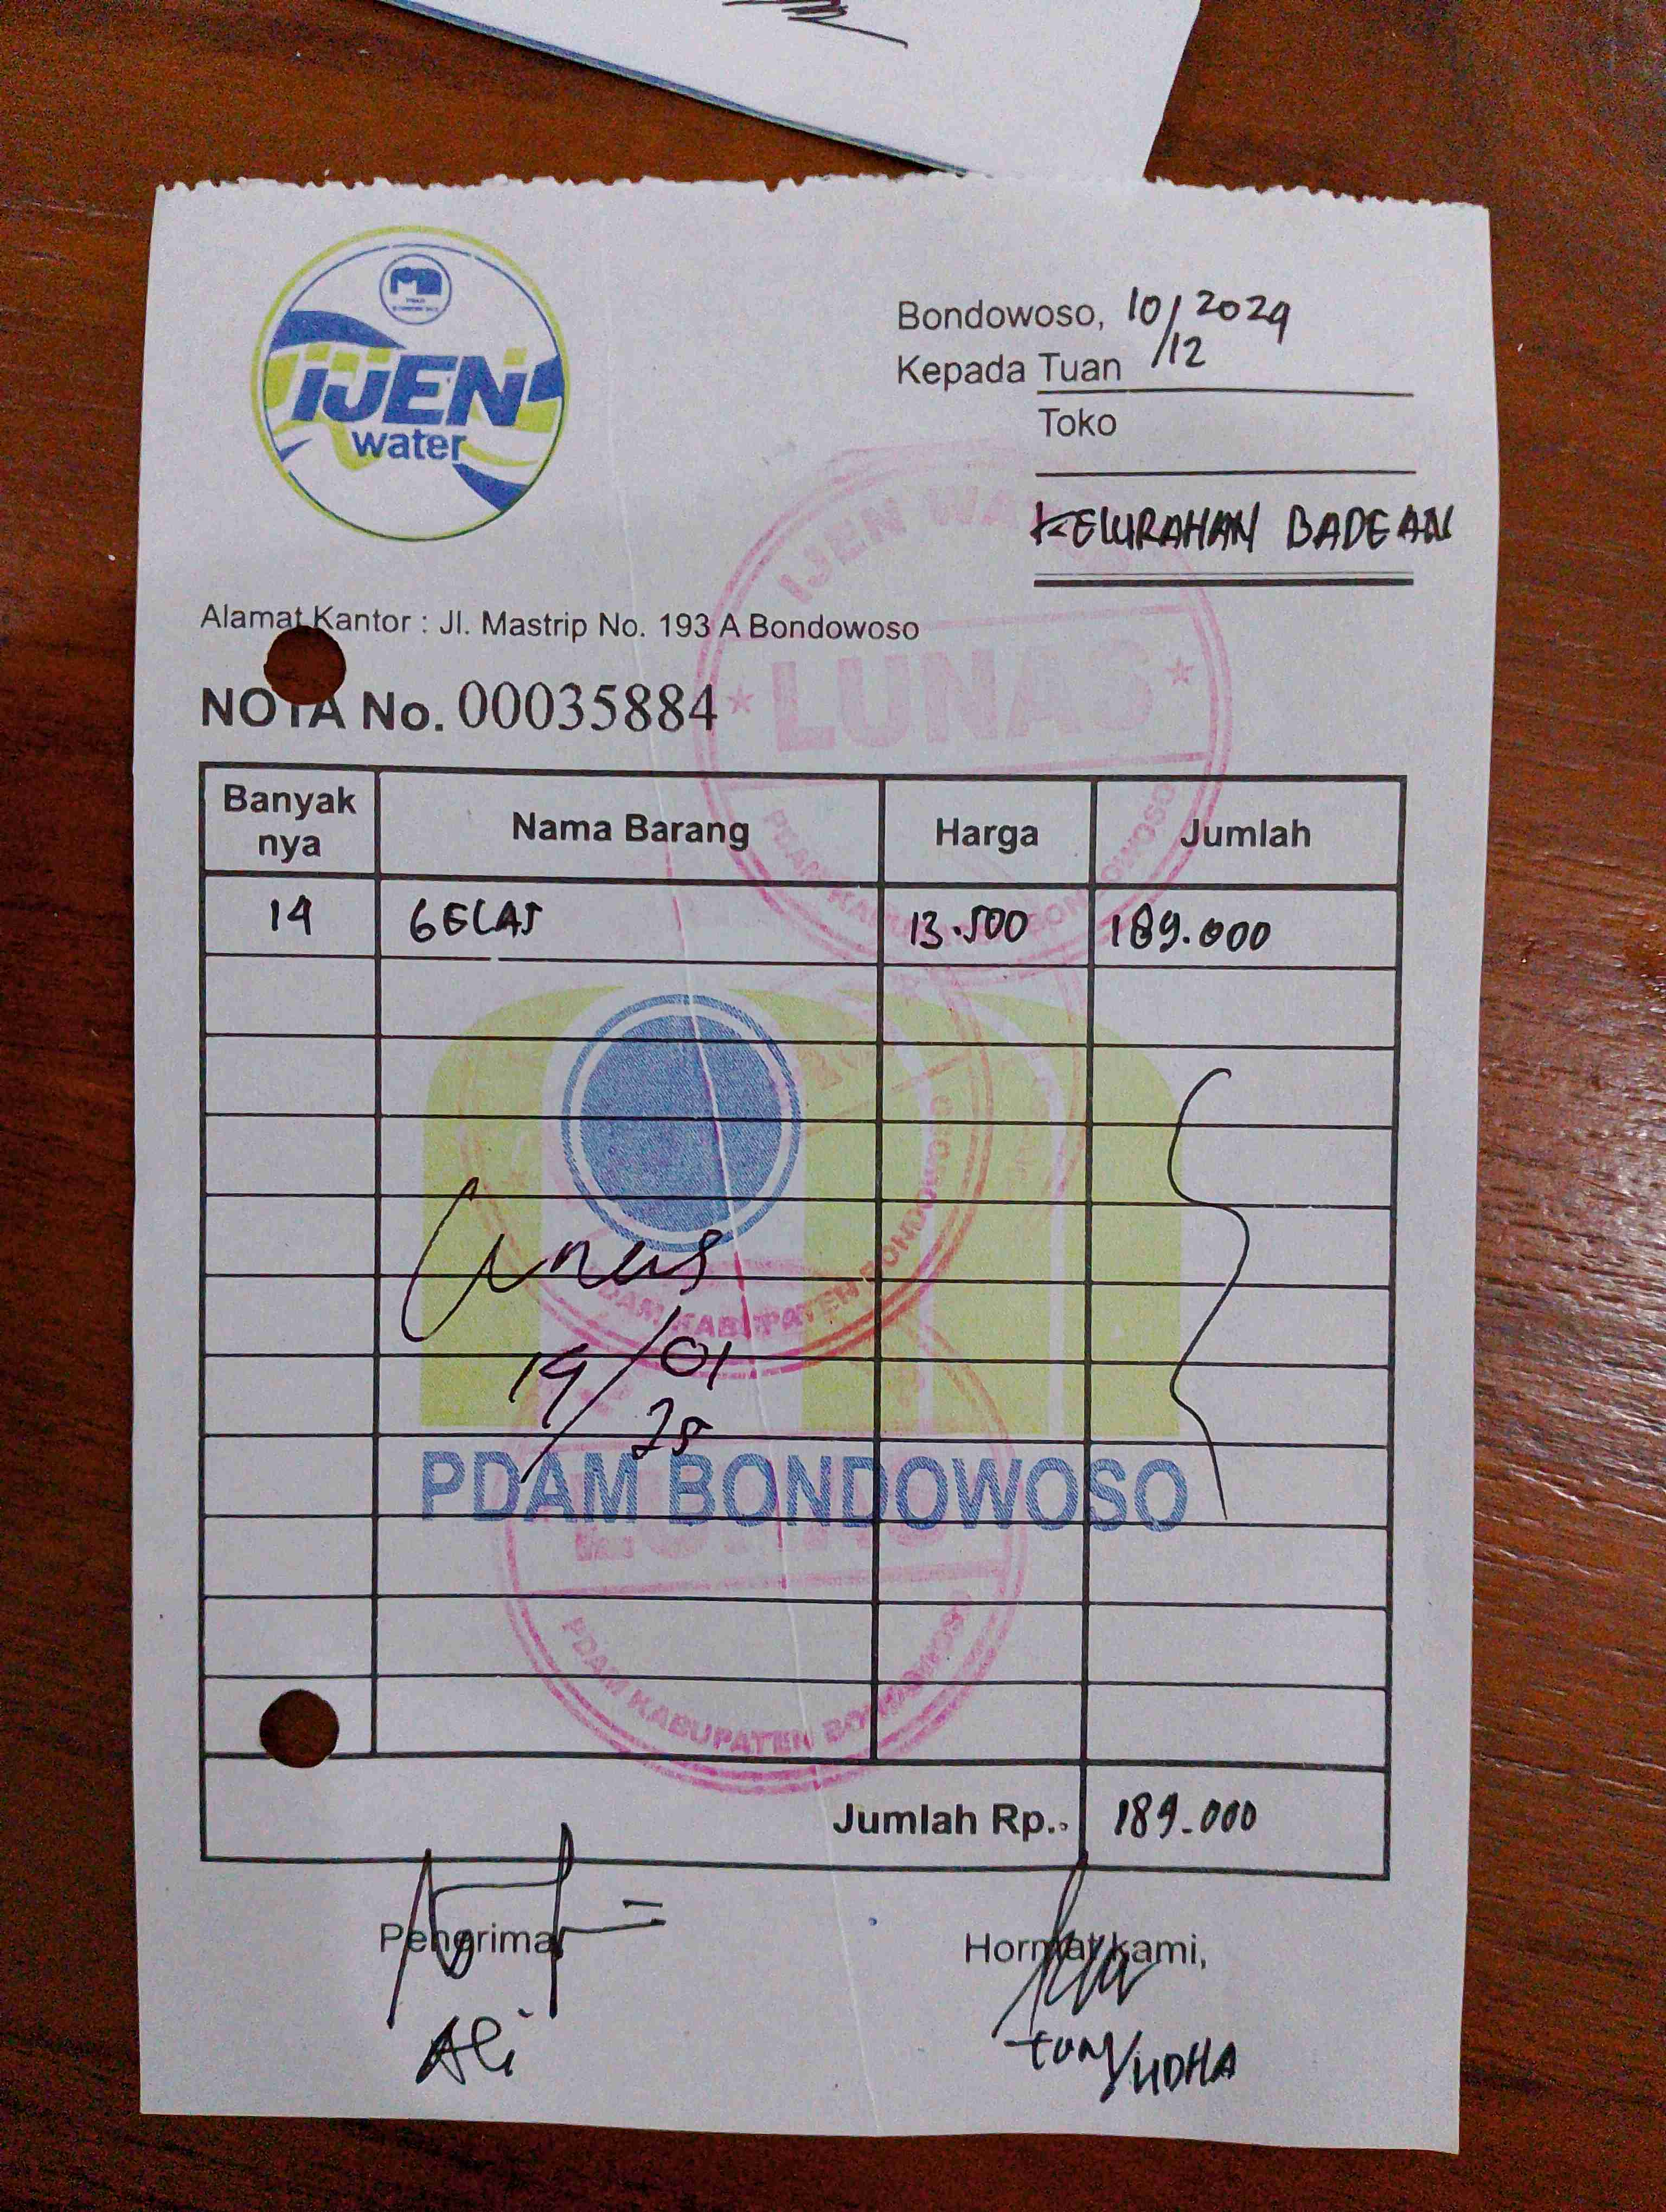 IJEN
water
Bondowoso, 10/12 2024
Kepada Tuan
Toko
KELURAHAN BADEAN
Alamat Kantor : Jl. Mastrip No. 193 A Bondowoso
NOTA No. 00035884
IJEN WATER
LUNAS
PDAM KABUPATEN BONDOWOSO
Banyak nya Nama Barang Harga Jumlah
14 GELAS 13.500 189.000
Lunas
14/01
25
PDAM KABUPATEN BONDOWOSO
PDAM BONDOWOSO
LUNAS
PDAM KABUPATEN BONDOWOSO
Jumlah Rp.. 189.000
Penerima Hormat kami,
Ali YUDHA